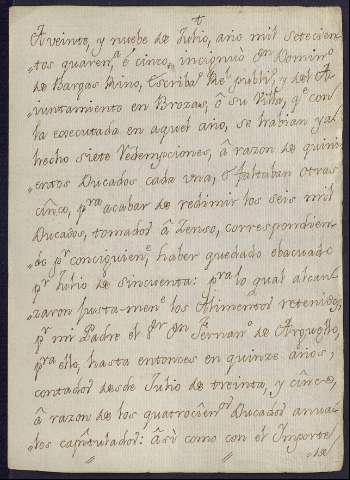 †
A veinte, y nuebe de Julio, año mil setecien-
tos quaren.ta é cinco, incignuò Dn Domin.o
de Bargas Rino, Escrib.o Rl publi.o, y del A-
iuntamiento en Brozas, ô su Villa, q.e con
la executada en aquel año, se habian ya
hecho siete Redempciones, â razon de quini-
entos Ducados cada una, é faltaban otras
cinco, pra acabar de redimir los seis mil
Ducados, tomados â Zenso, correspondien-
do pr conciguien.e, haber quedado ebacuado
pr Julio de sincuenta: pra lo qual alcan-
zaron justa-men.e los Alimentos retenidos,
pr mi Padre el Sr Dn Fernan.o de Arguello,
pra ello, hasta entonces en quinze años,
contados desde Julio de treinta, y cinco,
â razon de los quatrocien.os Ducados anua-
les capitulados: âsì como con el Importe